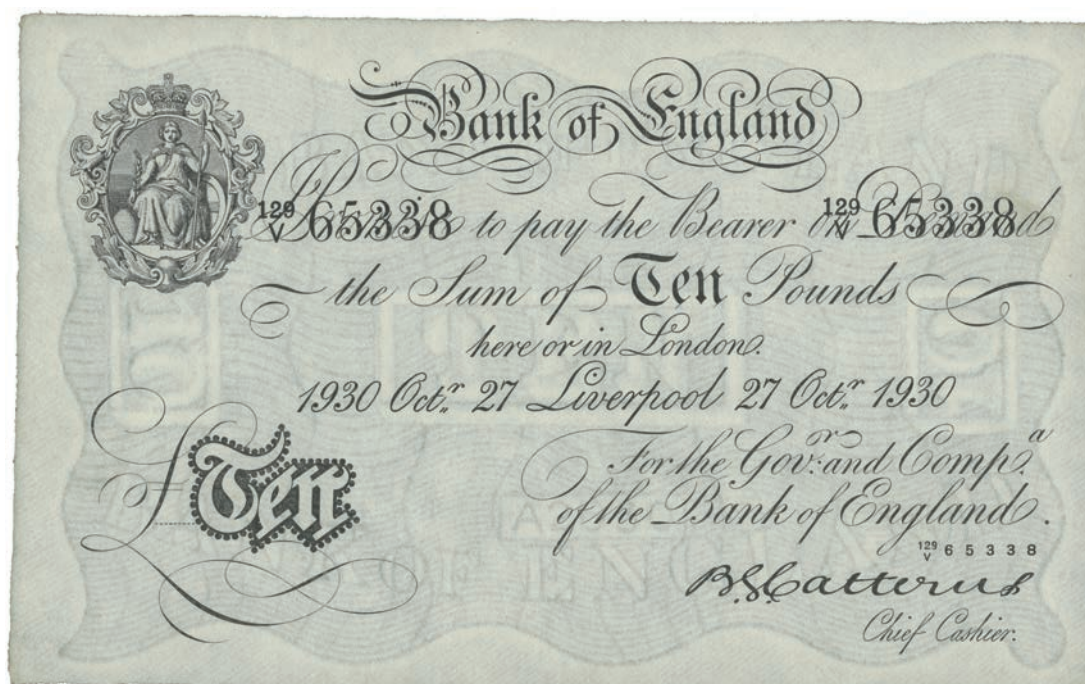 Bank of England
129
V 65338 to pay the Bearer on Demand 129
V 65338
the Sum of Ten Pounds
here or in London.
1930 Octr. 27 Liverpool 27 Octr. 1930
For the Govr. and Compa.
of the Bank of England.
£Ten
129
V 65338
B.G. Catterns
Chief Cashier.